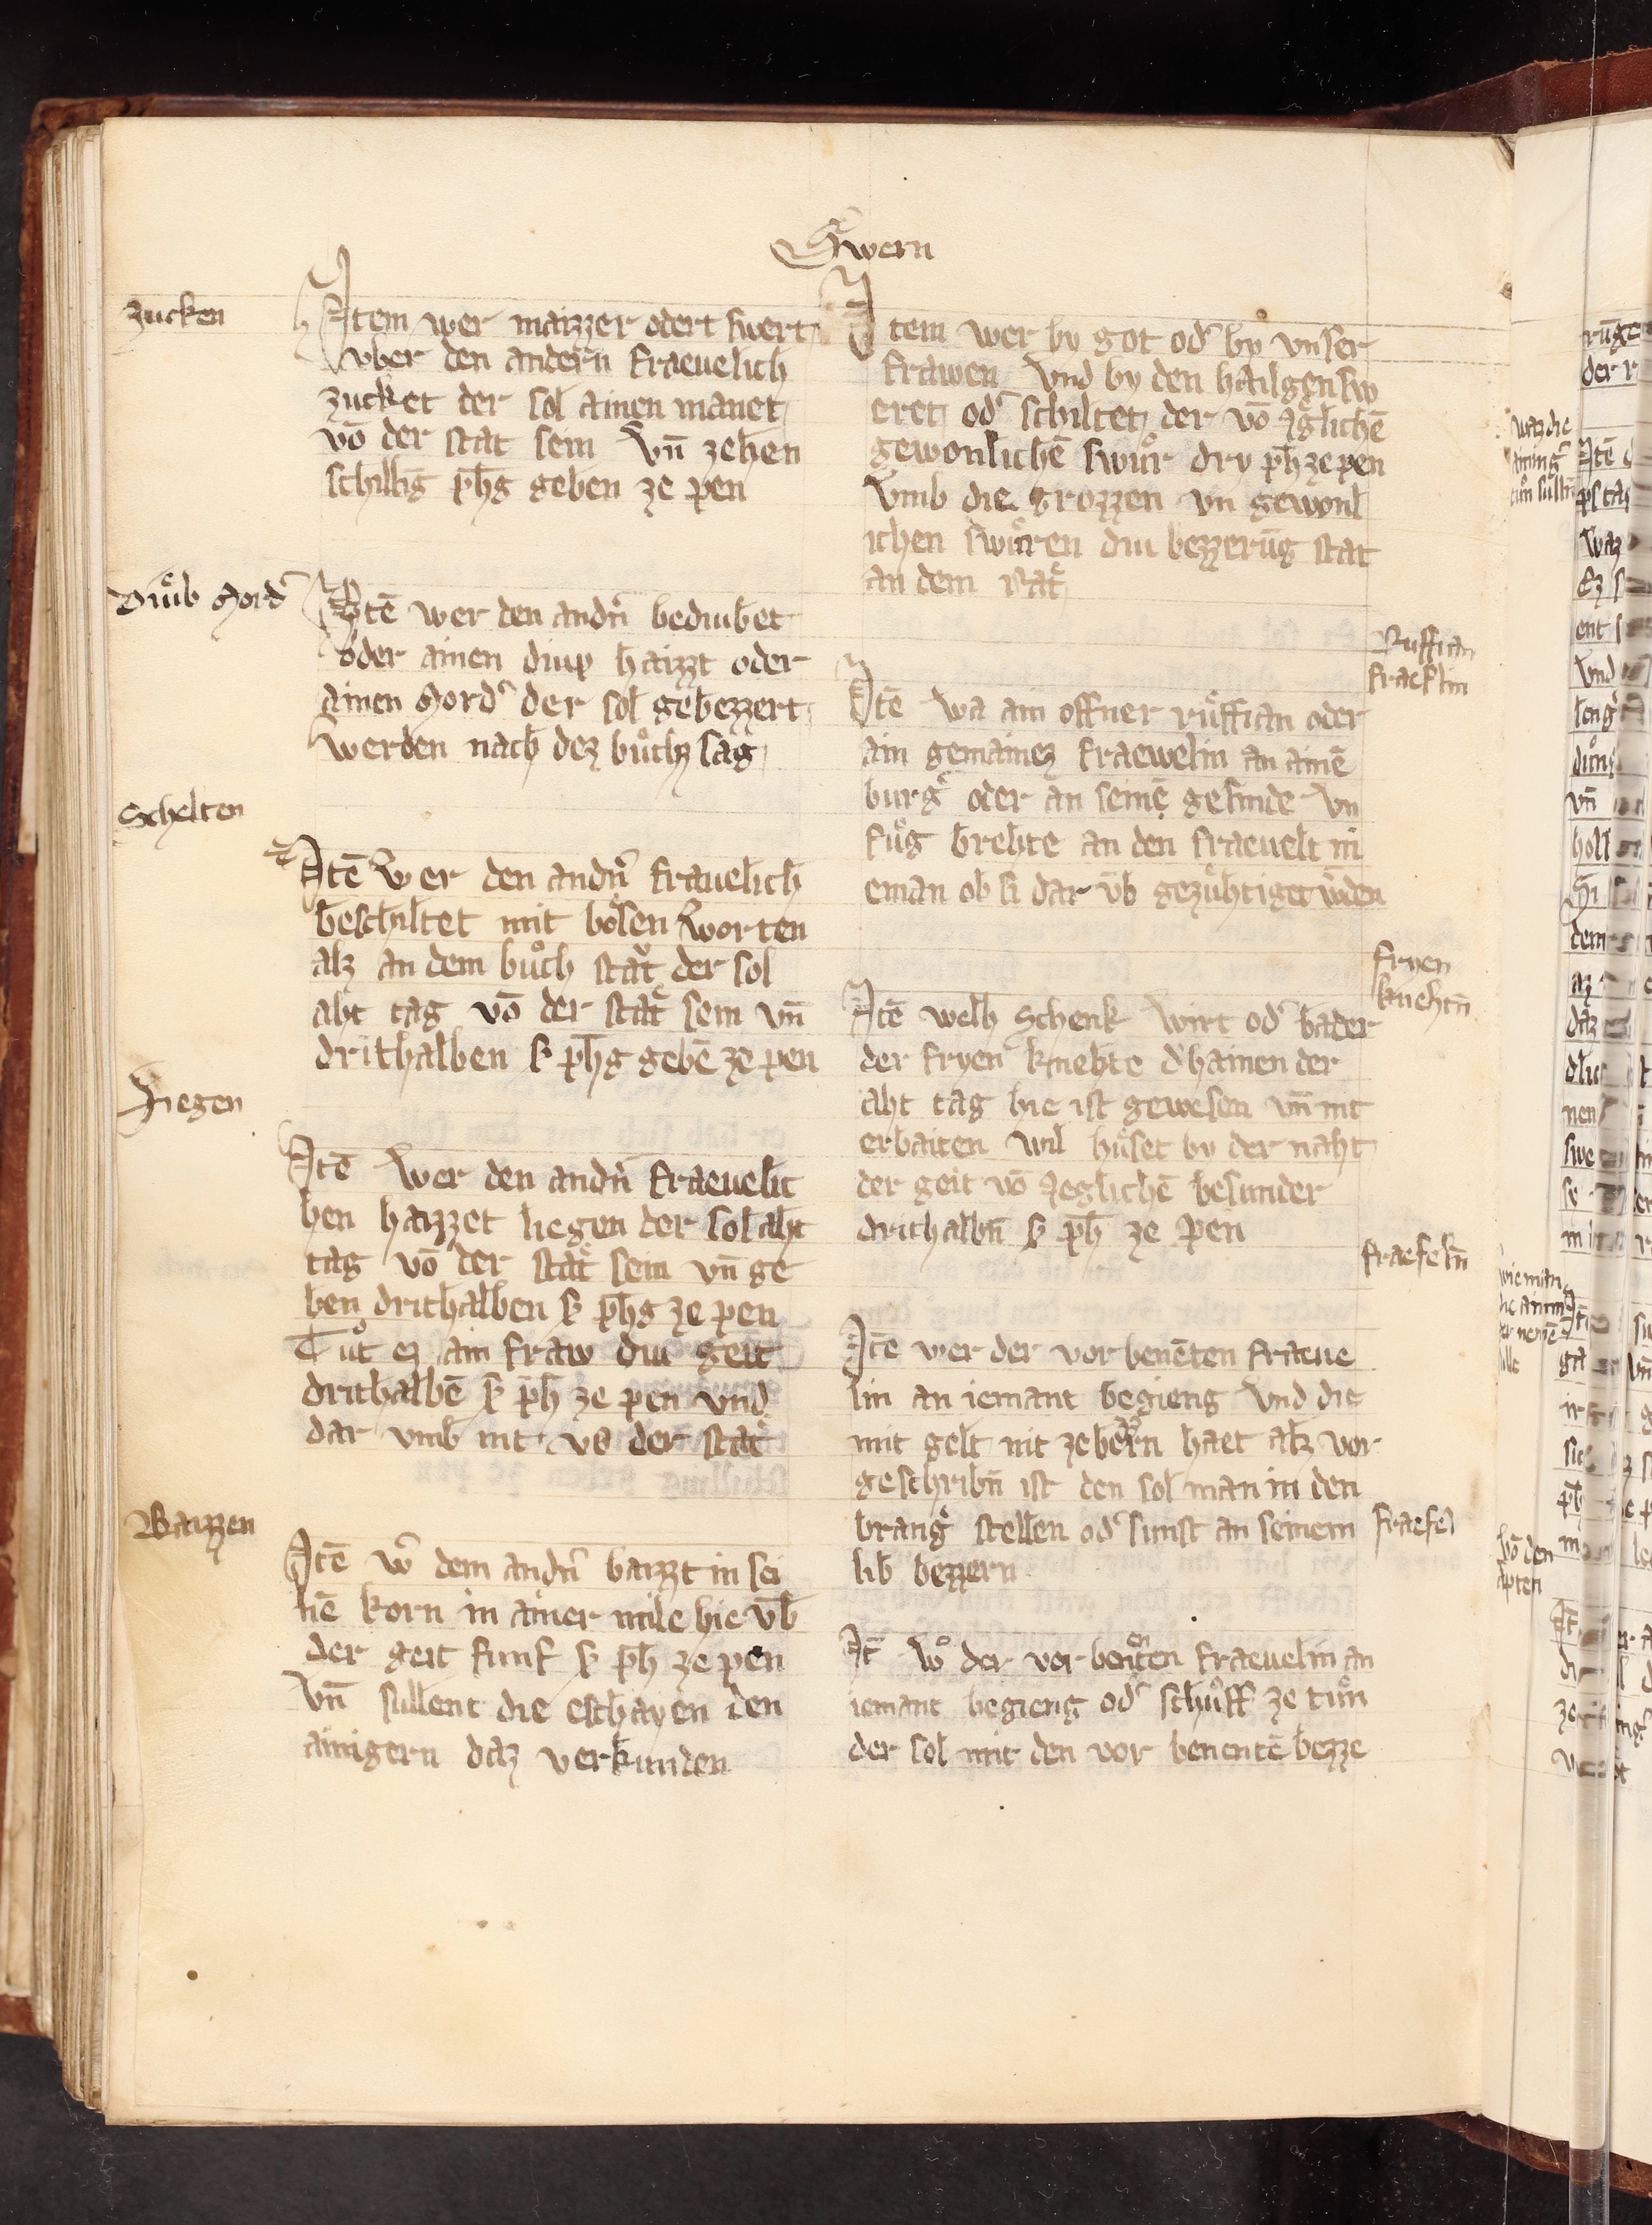 Swern
Zucken
Item wer maizzer odert swert
vber den andern fraeuelich
zucket der sol ainen manet
vō der stat sein Vn̄ zehen
schillīg ph̄g geben ze pen
Diuͤb Mord'
Itē wer den andn̄ bediubet
oder ainen diup haizzt oder
ainen Mord' der sol gebezzert
werden nach dez buͦchz sag
Schelten
Itē Wer den andn̄ frauelich
beschiltet mit boͤsen Worten
alz an dem buͦch staͤt der sol
aht tag vō der staͤt sein vn̄
drithalben ß ph̄g gebē ze pen
Liegen
Itē Wer den andn̄ fraeuelic
hen haizzet liegen der sol aht
tag vō der staͤt sein vn̄ ge
ben drithalben ß ph̄g ze pen
Tuͦt ez ain fraw diu geit
drithalbē ß ph̄ ze pen vnd
dar vmb nit vs der staͤt
Baizzen
Itē w' dem andn̄ baizzt in sei
nē korn in ainer mile hie vb̄
der geit funf ß ph̄ ze pen
Vn̄ sullent die eschayen den
ainigern daz verkunden
Item wer by got od' by vnser
frawen Vnd by den hailgen sw
eret od' schiltet der vō yglichē
gewonlichē swuͦr dry ph̄ ze pen
Vmb die grozzen vn gewonl
ichen swuͤren diu bezzerūg stat
an dem rat
Ruffian
fraeflin
Itē wa ain offner ruͤffian oder
ain gemainez fraewelin an ainē
burg' oder an seinē gesinde Vn
fuͦg brehte an den fraeuelt in
eman ob si dar vb̄ gezuͤhtiget w'den
fryen
knehtn̄
Itē welh Schenk wirt od' bader
der fryen knehte d'hainen der
aht tag hie ist gewesen vn̄ nit
erbaiten wil huͤset by der naht
der geit vō yeglichē besunder
drithalbn̄ ß ph̄ ze pen
fraefeln̄
Itē wer der vor benētē fraeue
lin an iemant begieng Vnd die
mit gelt nit ze bezzern haet alz vor
geschribn̄ ist den sol man in den
brang' stellen od' sunst an seinem
lib bezzern
fraefel
It̄ w' der vor benenten fraeuelin an
iemant begieng od' schuͦff ze tuͦn
der sol mit den vor benentē bezze